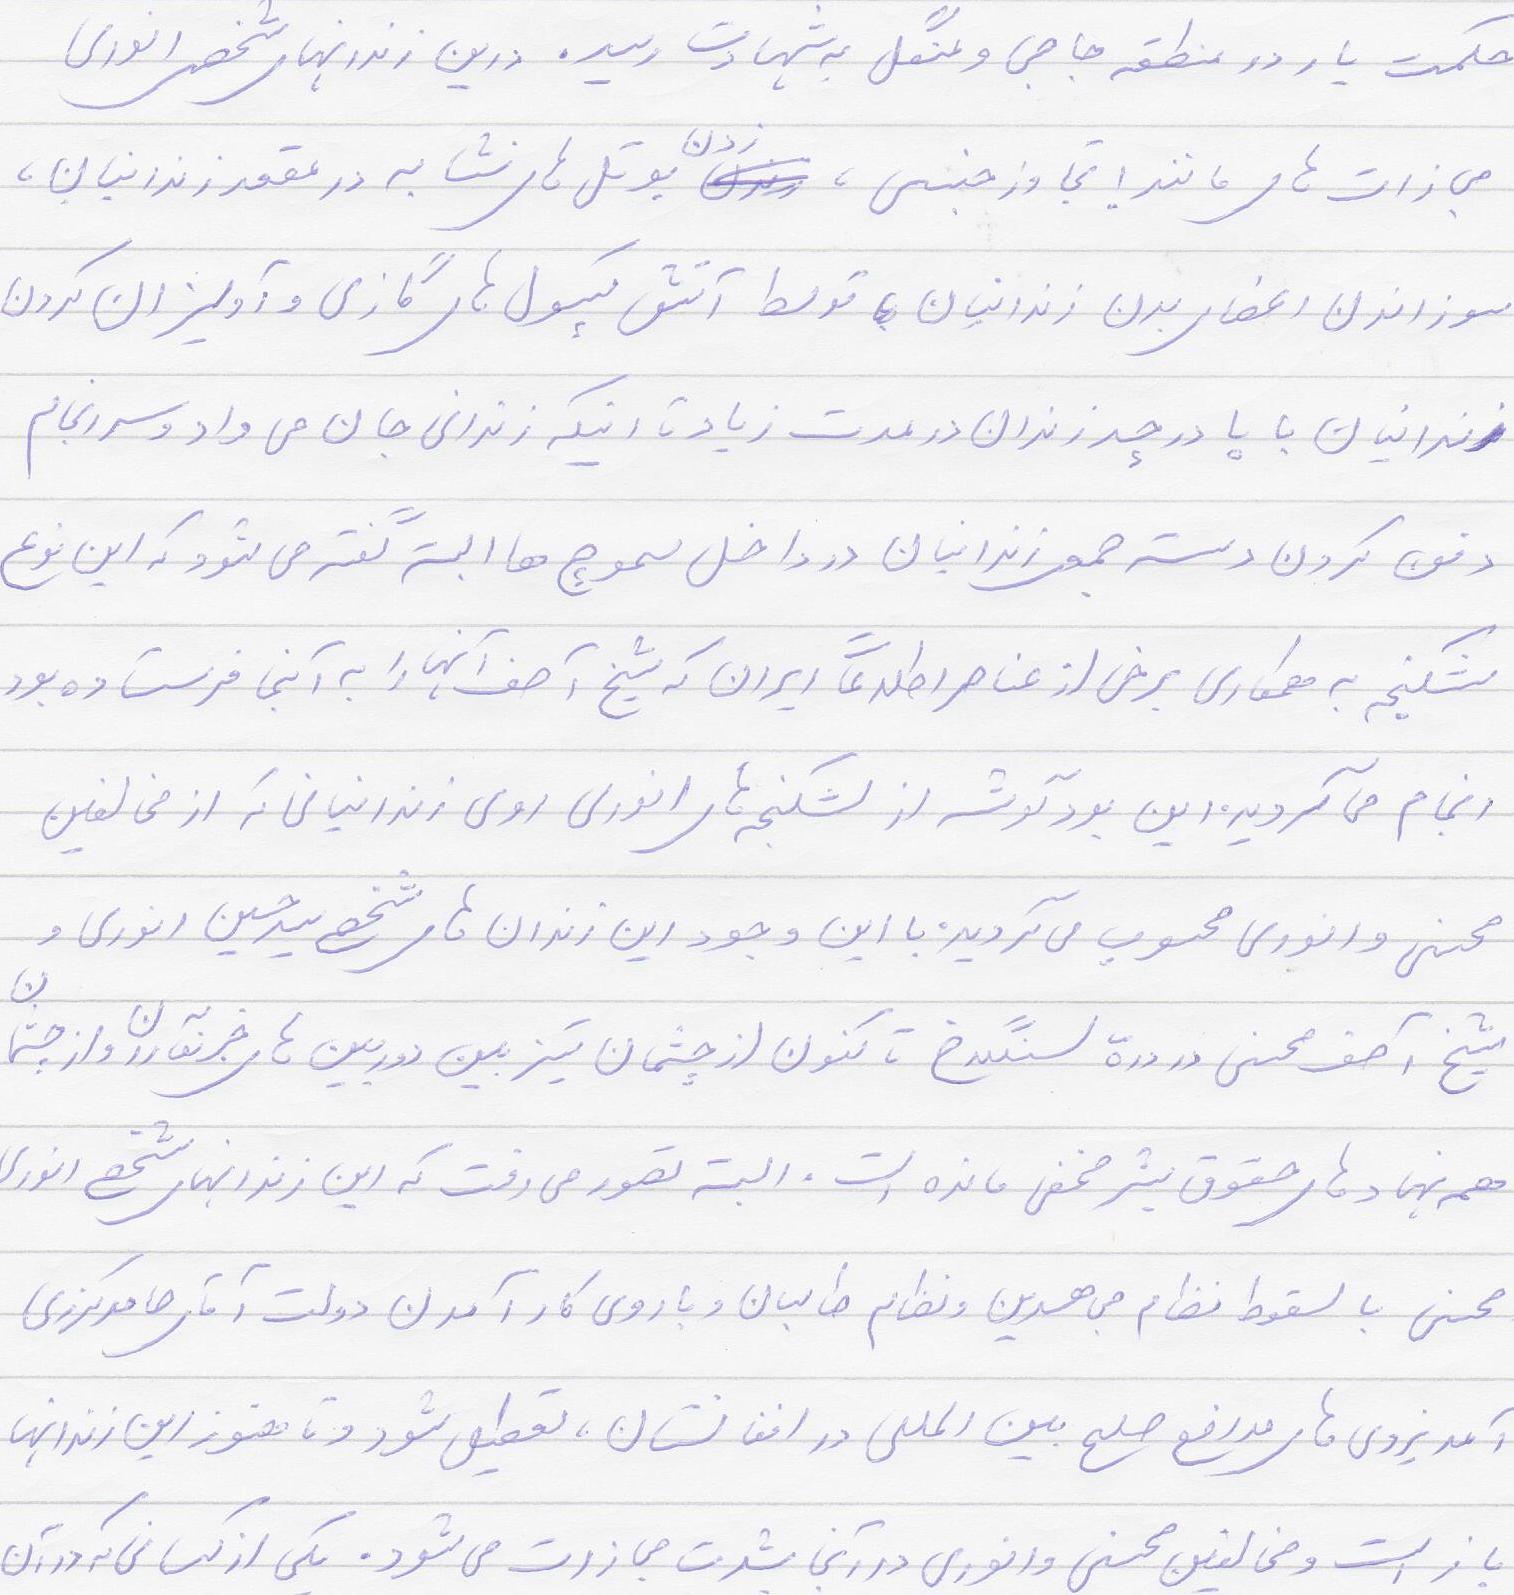 حکمت یار در منطقه جاجی و منگل به شهادت رسید. درین زندانهای شخصی انوری
مجازات های مانند تجاوز جنسی، زدن بوتل های نشابه در مقعد زندانیان،
سوزاندن اعضای بدن زندانیان توسط آتش کپسول های گازی و آویزان کردن
زندانیان با پا در چد زندان در مدت زیاد تا اینکه زندانی جان می داد و سرانجام
دفن کردن دسته جمعی زندانیان در داخل سموچ ها البته گفته می شود که این نوع
شکنجه به همکاری برخی از عناصر اطلاعاتی ایران که شیخ آصف آنها را به آنجا فرستاده بود
انجام می گردید. این بود گوشه از شکنجه های انوری روی زندانیانی که از مخالفین
محسنی و انوری محسوب می گردید. با این وجود این زندان های شخصی سید حسین انوری و
شیخ آصف محسنی در درهٔ سنگلاخ تا کنون از چشمان تیز بین دوربین های خبرنگاران و از چشمان
همه نهاد های حقوق بشر مخفی مانده است. البته تصور می رفت که این زندانهای شخصی انوری
محسنی با سقوط نظام مجاهدین و نظام طالبان و با روی کار آمدن دولت آقای حامد کرزی
آمد نیروی های مدافع صلح بین المللی در افغانستان، تعطیل شود و تا هنوز این زندانها
باز است و مخالفین محسنی و انوری در آنجا بشدت مجازات می شود. یکی از کسانی که در آن